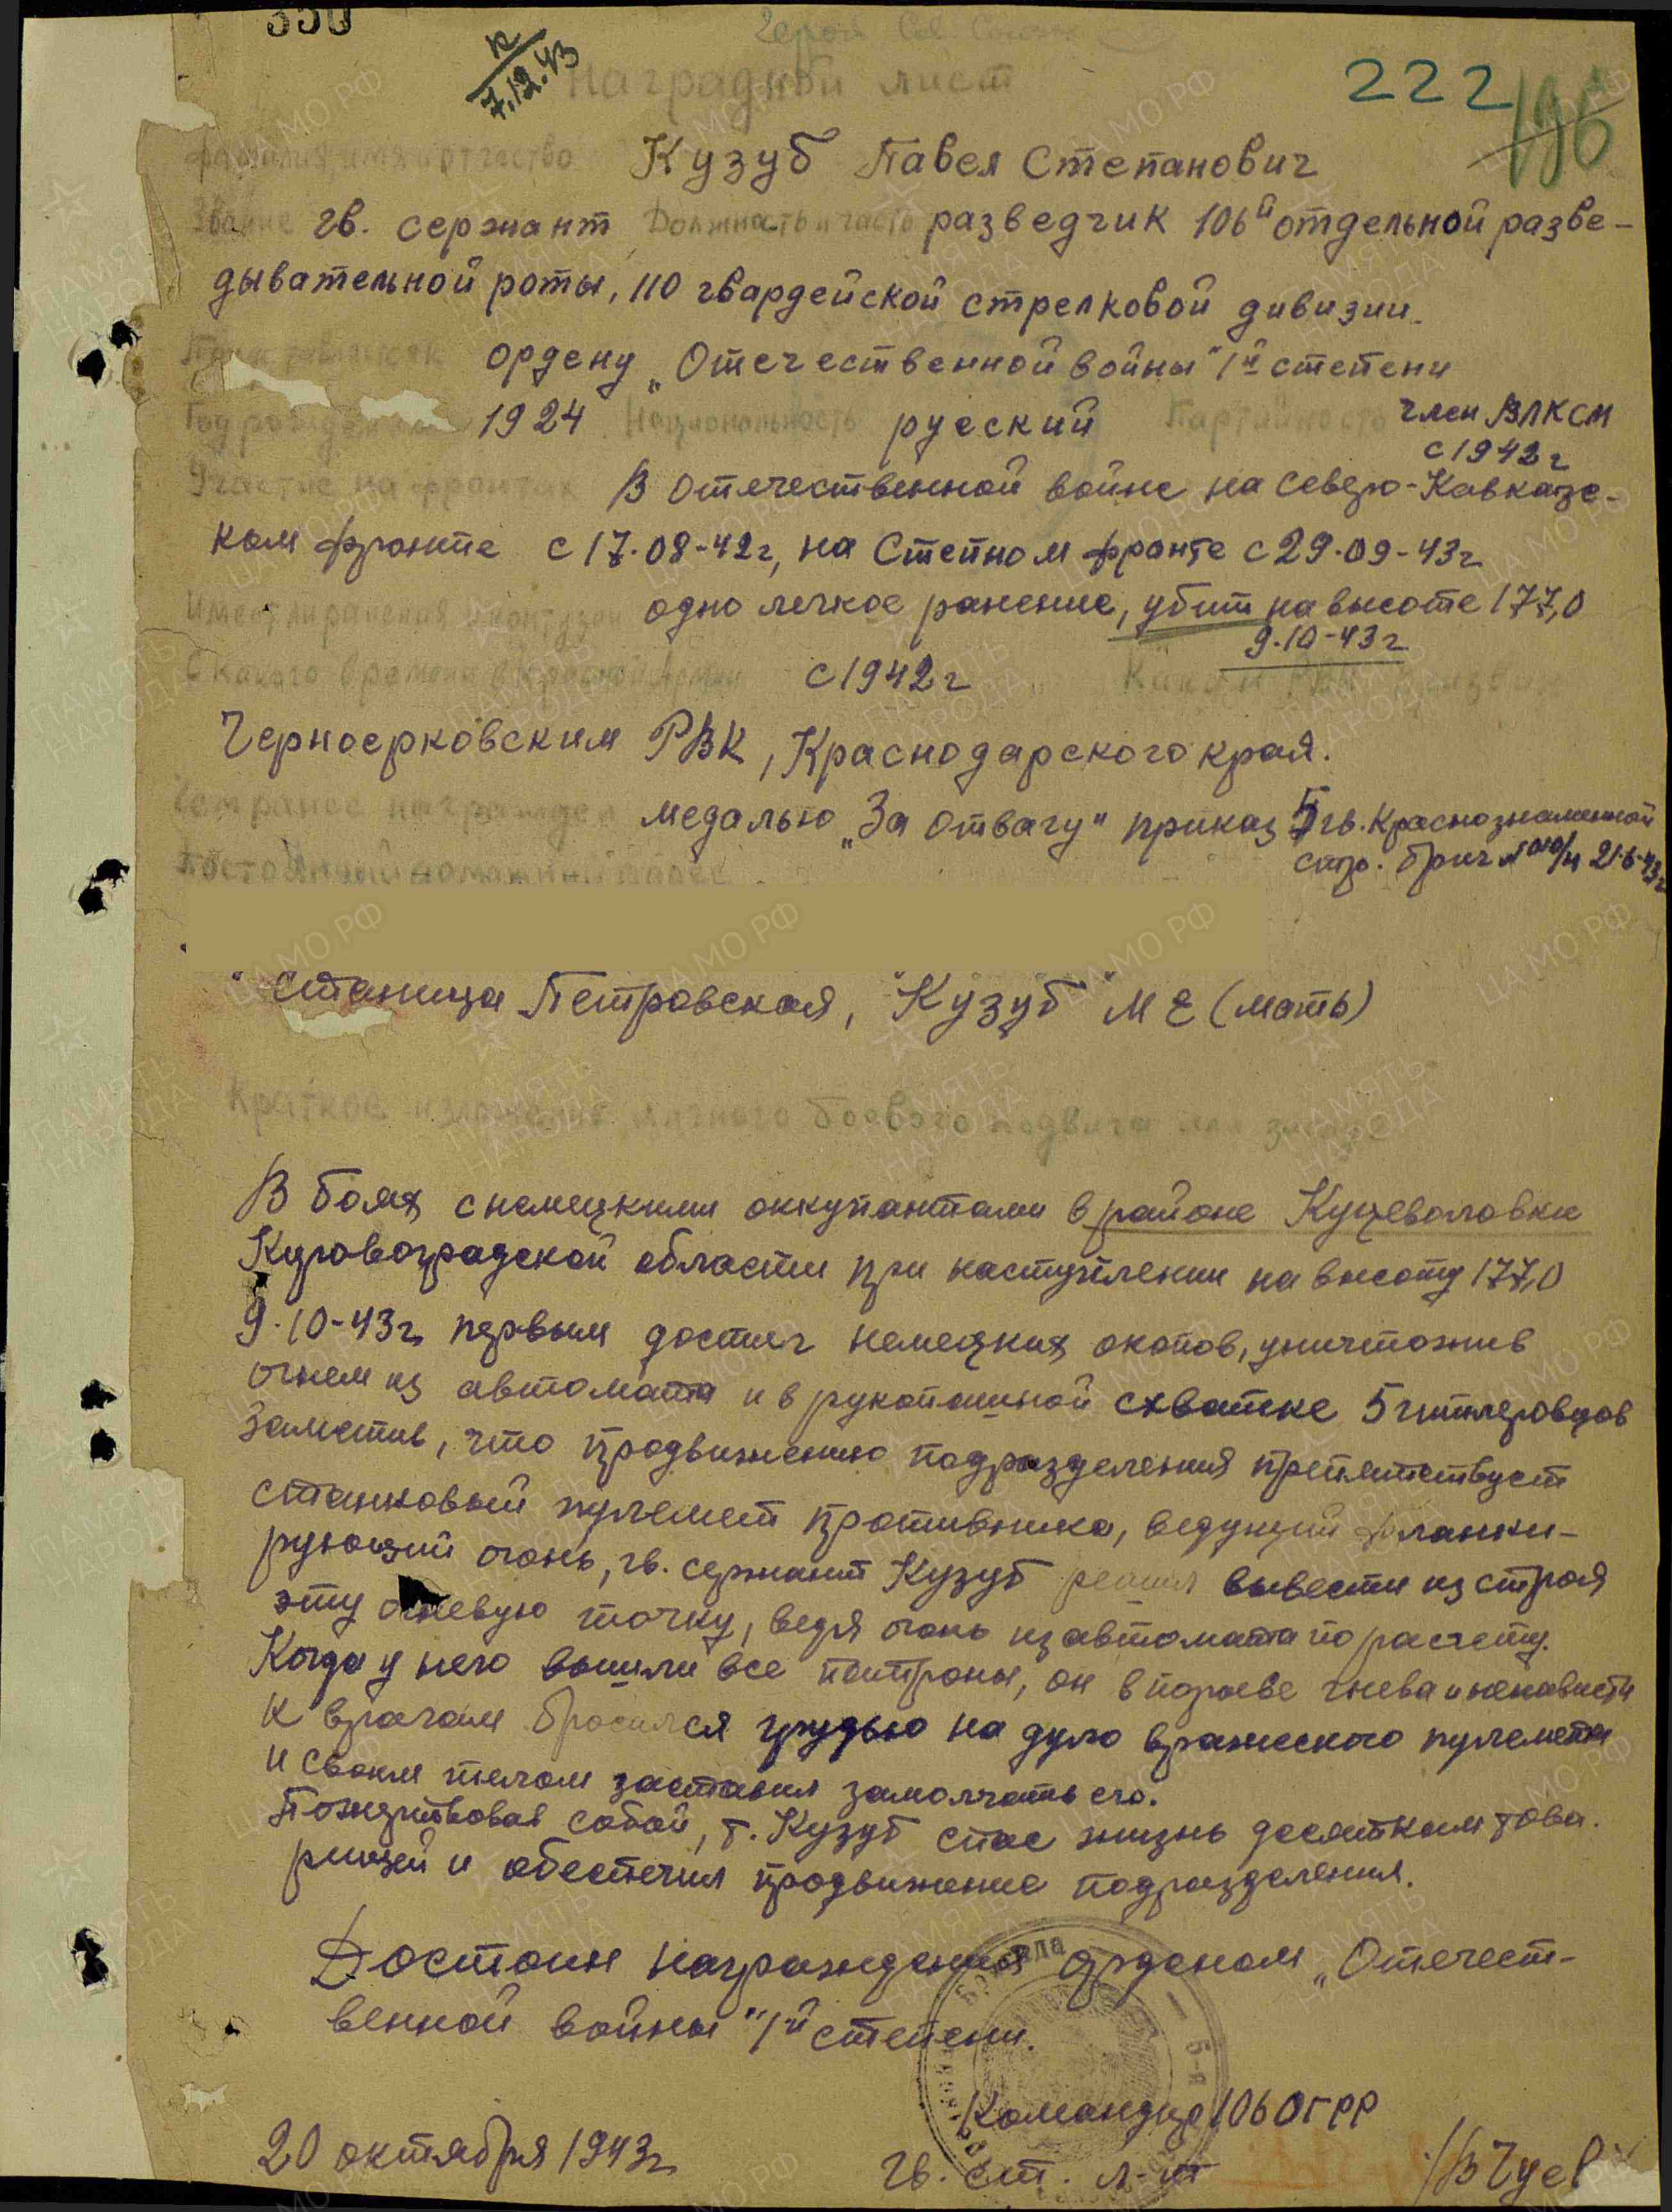 350
Герой Сов Союза
7.12.43
222
196
Наградной лист
фамилия, имя и отчество Кузуб Павел Степанович
Звание гв. сержант Должность и часть разведчик 106й отдельной разве-
дывательной роты, 110 гвардейской стрелковой дивизии.
ордену „Отечественной войны" 1й степени
Год рождения 1924 Национальность русский Партийность член ВЛКСМ
с 1942 г
Участие на фронтах В Отечественной войне на Северо-Кавказс-
ком фронте с 17.08-42г, на Степном фронте с 29.09-43г
Имеет ли ранения и контузии одно легкое ранение, убит на высоте 177,0
9.10-43г
С какого времени в Красной Армии с 1942 г Каким РВК призван
Черноерковским РВК, Краснодарского края.
Чем ранее награжден медалью „За отвагу" приказ 5 гв. Краснознаменной
стр. бриг № 010/н 21.6.43г
Постоянный домашний адрес
станица Петровская, "Кузуб" М Е (мать)
Краткое изложение личного боевого подвига или заслуг
В боях с немецкими оккупантами в районе Куцеволовки
Кировоградской области при наступлении на высоту 177,0
9.10-43г первым достиг немецких окопов, уничтожив
огнем из автомата и в рукопашной схватке 5 гитлеровцов
Заметив, что продвижению подразделения препятствует
станковый пулемет противника, ведущий фланки-
рующий огонь, гв. сержант Кузуб решил вывести из строя
эту огневую точку, ведя огонь из автомата по расчету.
Когда у него вышли все патроны, он в порыве гнева и ненависти
к врагам бросился грудью на дуло вражеского пулемета
и своим телом заставил замолчать его.
Пожертвовав собой, т. Кузуб спас жизнь десяткам това-
рищей и обеспечил продвижение подразделения.
Достоин награждения орденом „Отечест-
венной войны" 1й степени.
Командир 106 ОГРР
20 октября 1943г гв. ст. л-т /В Чуев/